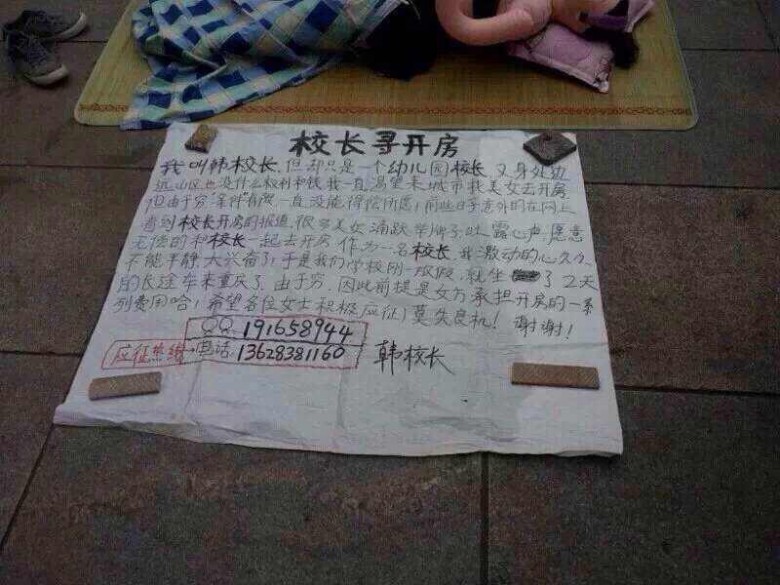 校长寻开房
我叫韩校长,但却只是一个幼儿园校长,又身处边
远山区也没什么权利和钱我一直渴望来城市找美女去开房
但由于穷"条件"有限一直没能得偿所愿!前些日子意外的在网上
看到校长开房的报道,很多美女涌跃举牌子吐露心声,愿意
无偿的和校长一起去开房 作为一名校长,我激动的心久久
不能平静 大兴奋了!于是我们学校刚一放假,就坐了2天
的长途车来重庆了,由于穷,因此前提是女方承担开房的一系
列费用哈!希望各位女士积极应征!莫失良机! 谢谢!
QQ 191658944
应征热线→电话 13628381160 韩校长